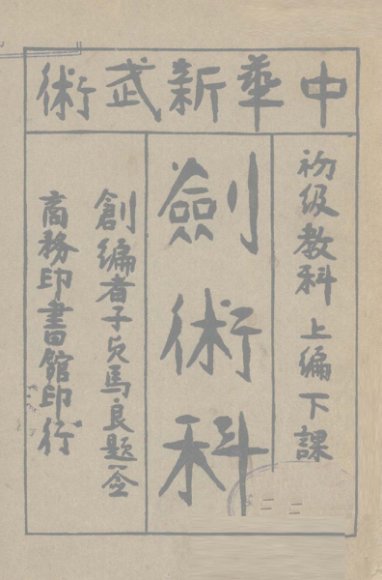 中華新武術
初級教科 上編下課
劍術科
創編者子貞馬良題簽
商務印書館印行